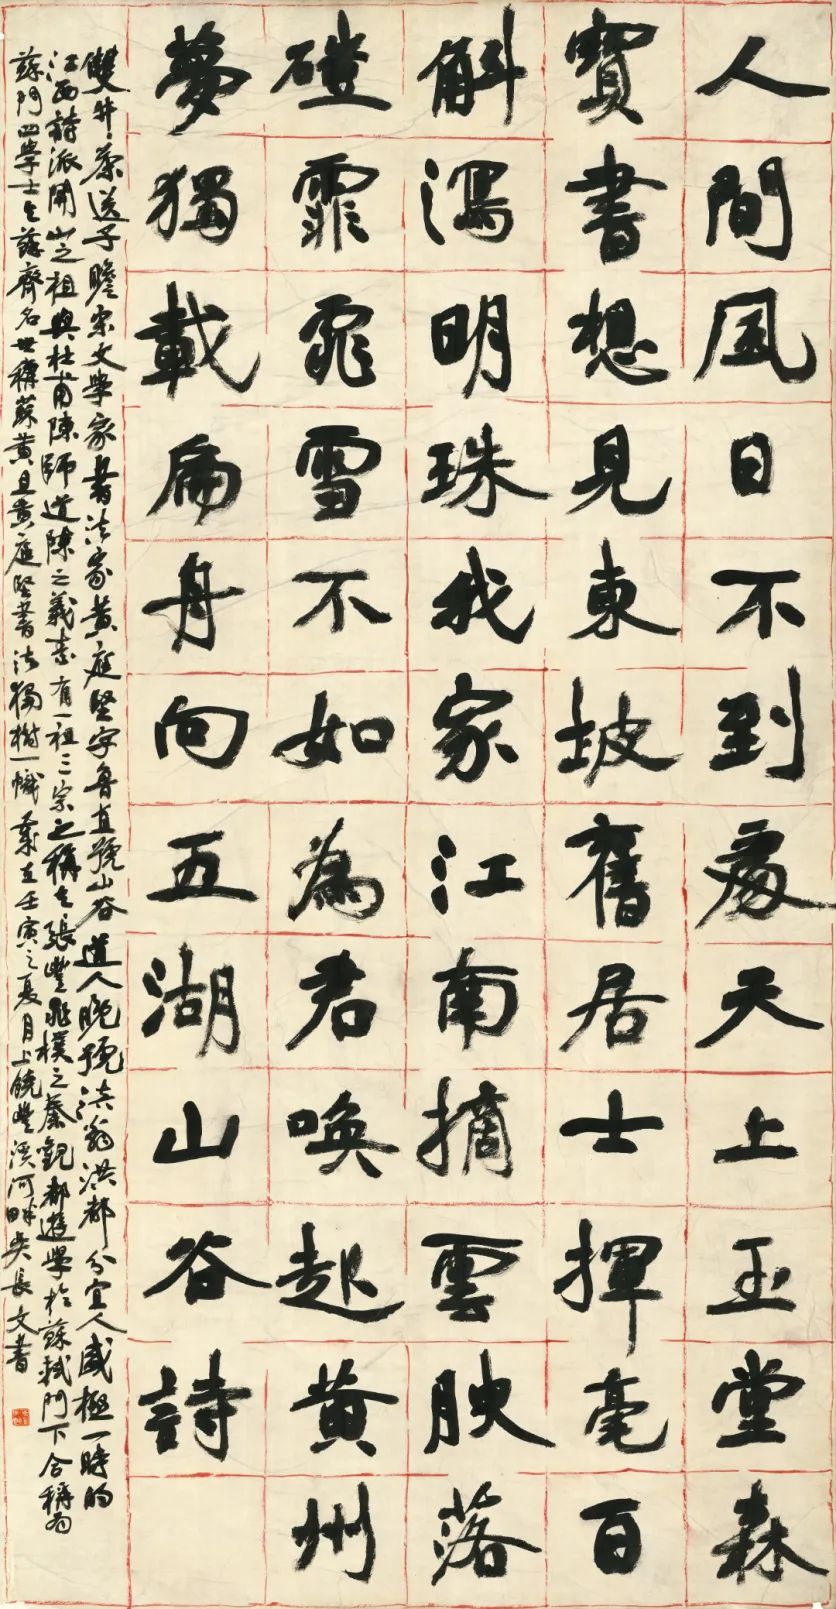 人間風日不到處天上玉堂森
寶書想見東坡舊居士揮毫百
斛瀉明珠我家江南摘雲腴落
磑霏霏雪不如為君喚起黃州
夢獨載扁舟向五湖山谷詩
雙井茶送子瞻宋文學家書法家黃庭堅字魯直號山谷道人晚號涪翁洪都分宜人盛極一時的
江西詩派開山之祖與杜甫陳師道陳之義素有一祖三宗之稱與張耒晁補之秦觀都遊學於蘇軾門下合稱為
蘇門四學士與蘇齊名世稱蘇黃且黃庭堅書法獨樹一幟歲在壬寅之夏月上饒豐溪河畔吳長文書